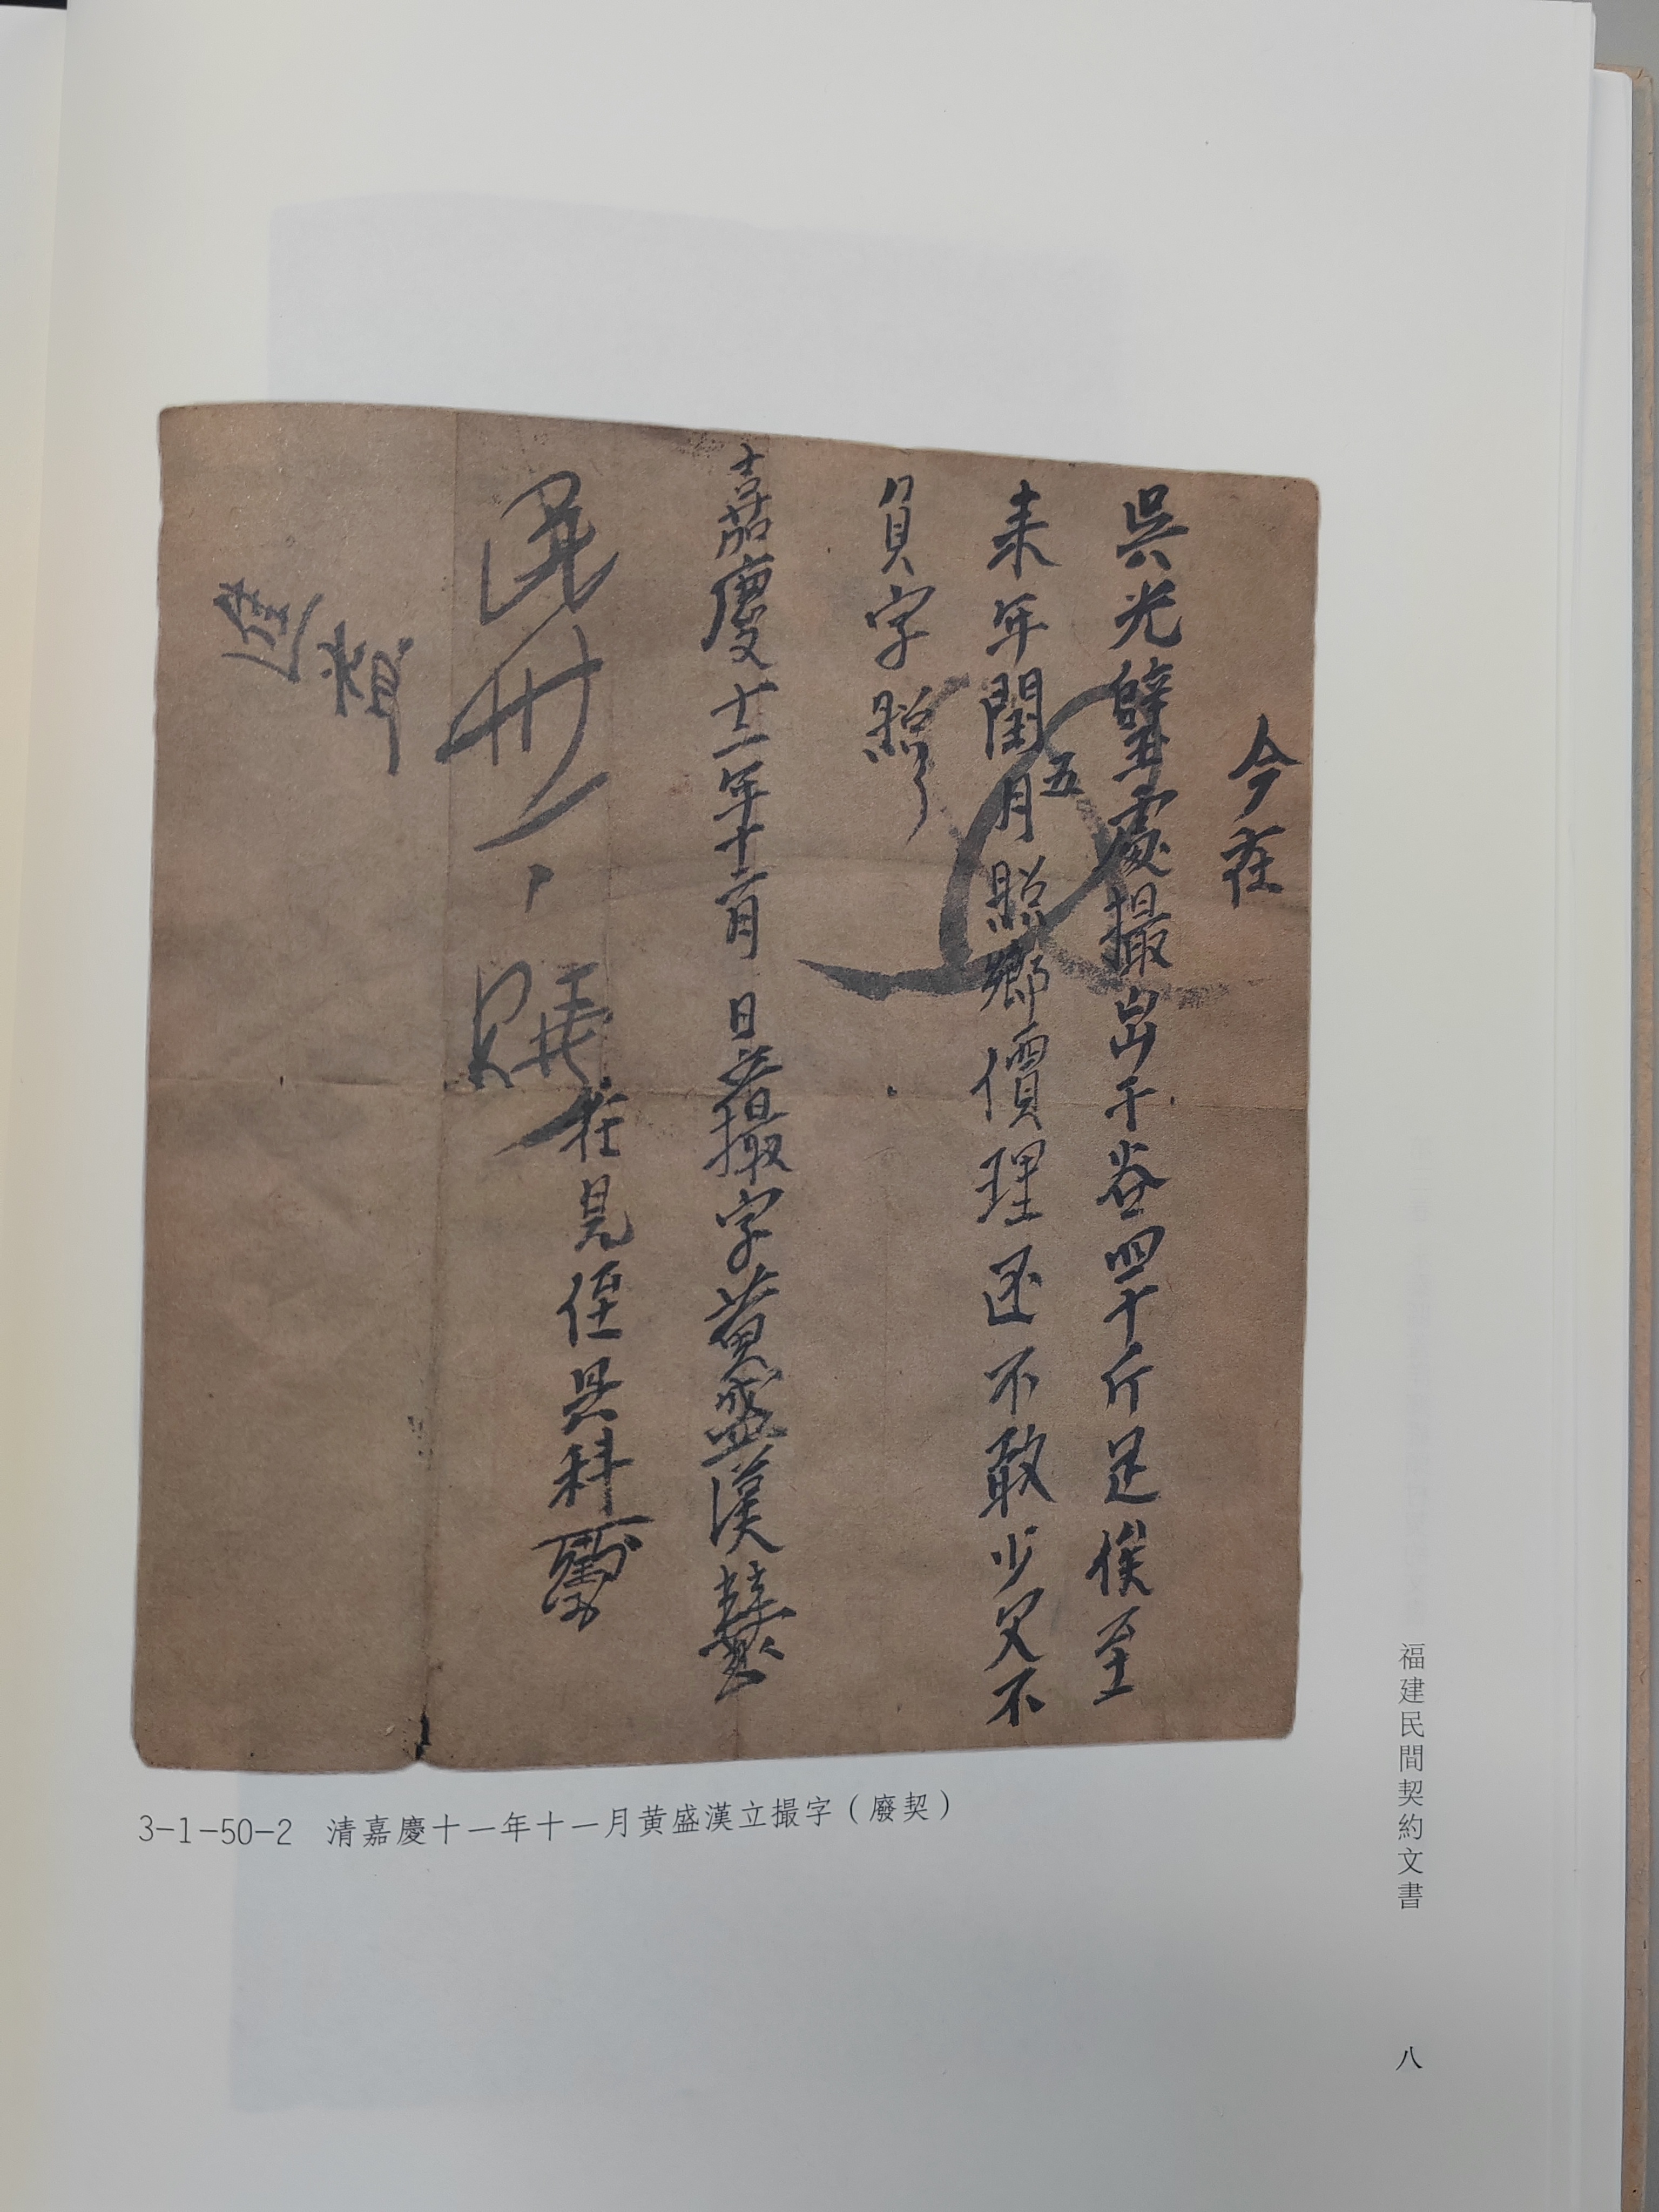 今在
吳光璧處撮出干谷四十斤足候至
來年閏五月照鄉價理还不敢少欠不
負字照
嘉慶十一年十一月 日立撮字黃盛漢
在見侄吳科
3-1-50-2 清嘉慶十一年十一月黄盛漢立撮字（廢契）
福建民間契約文書
八